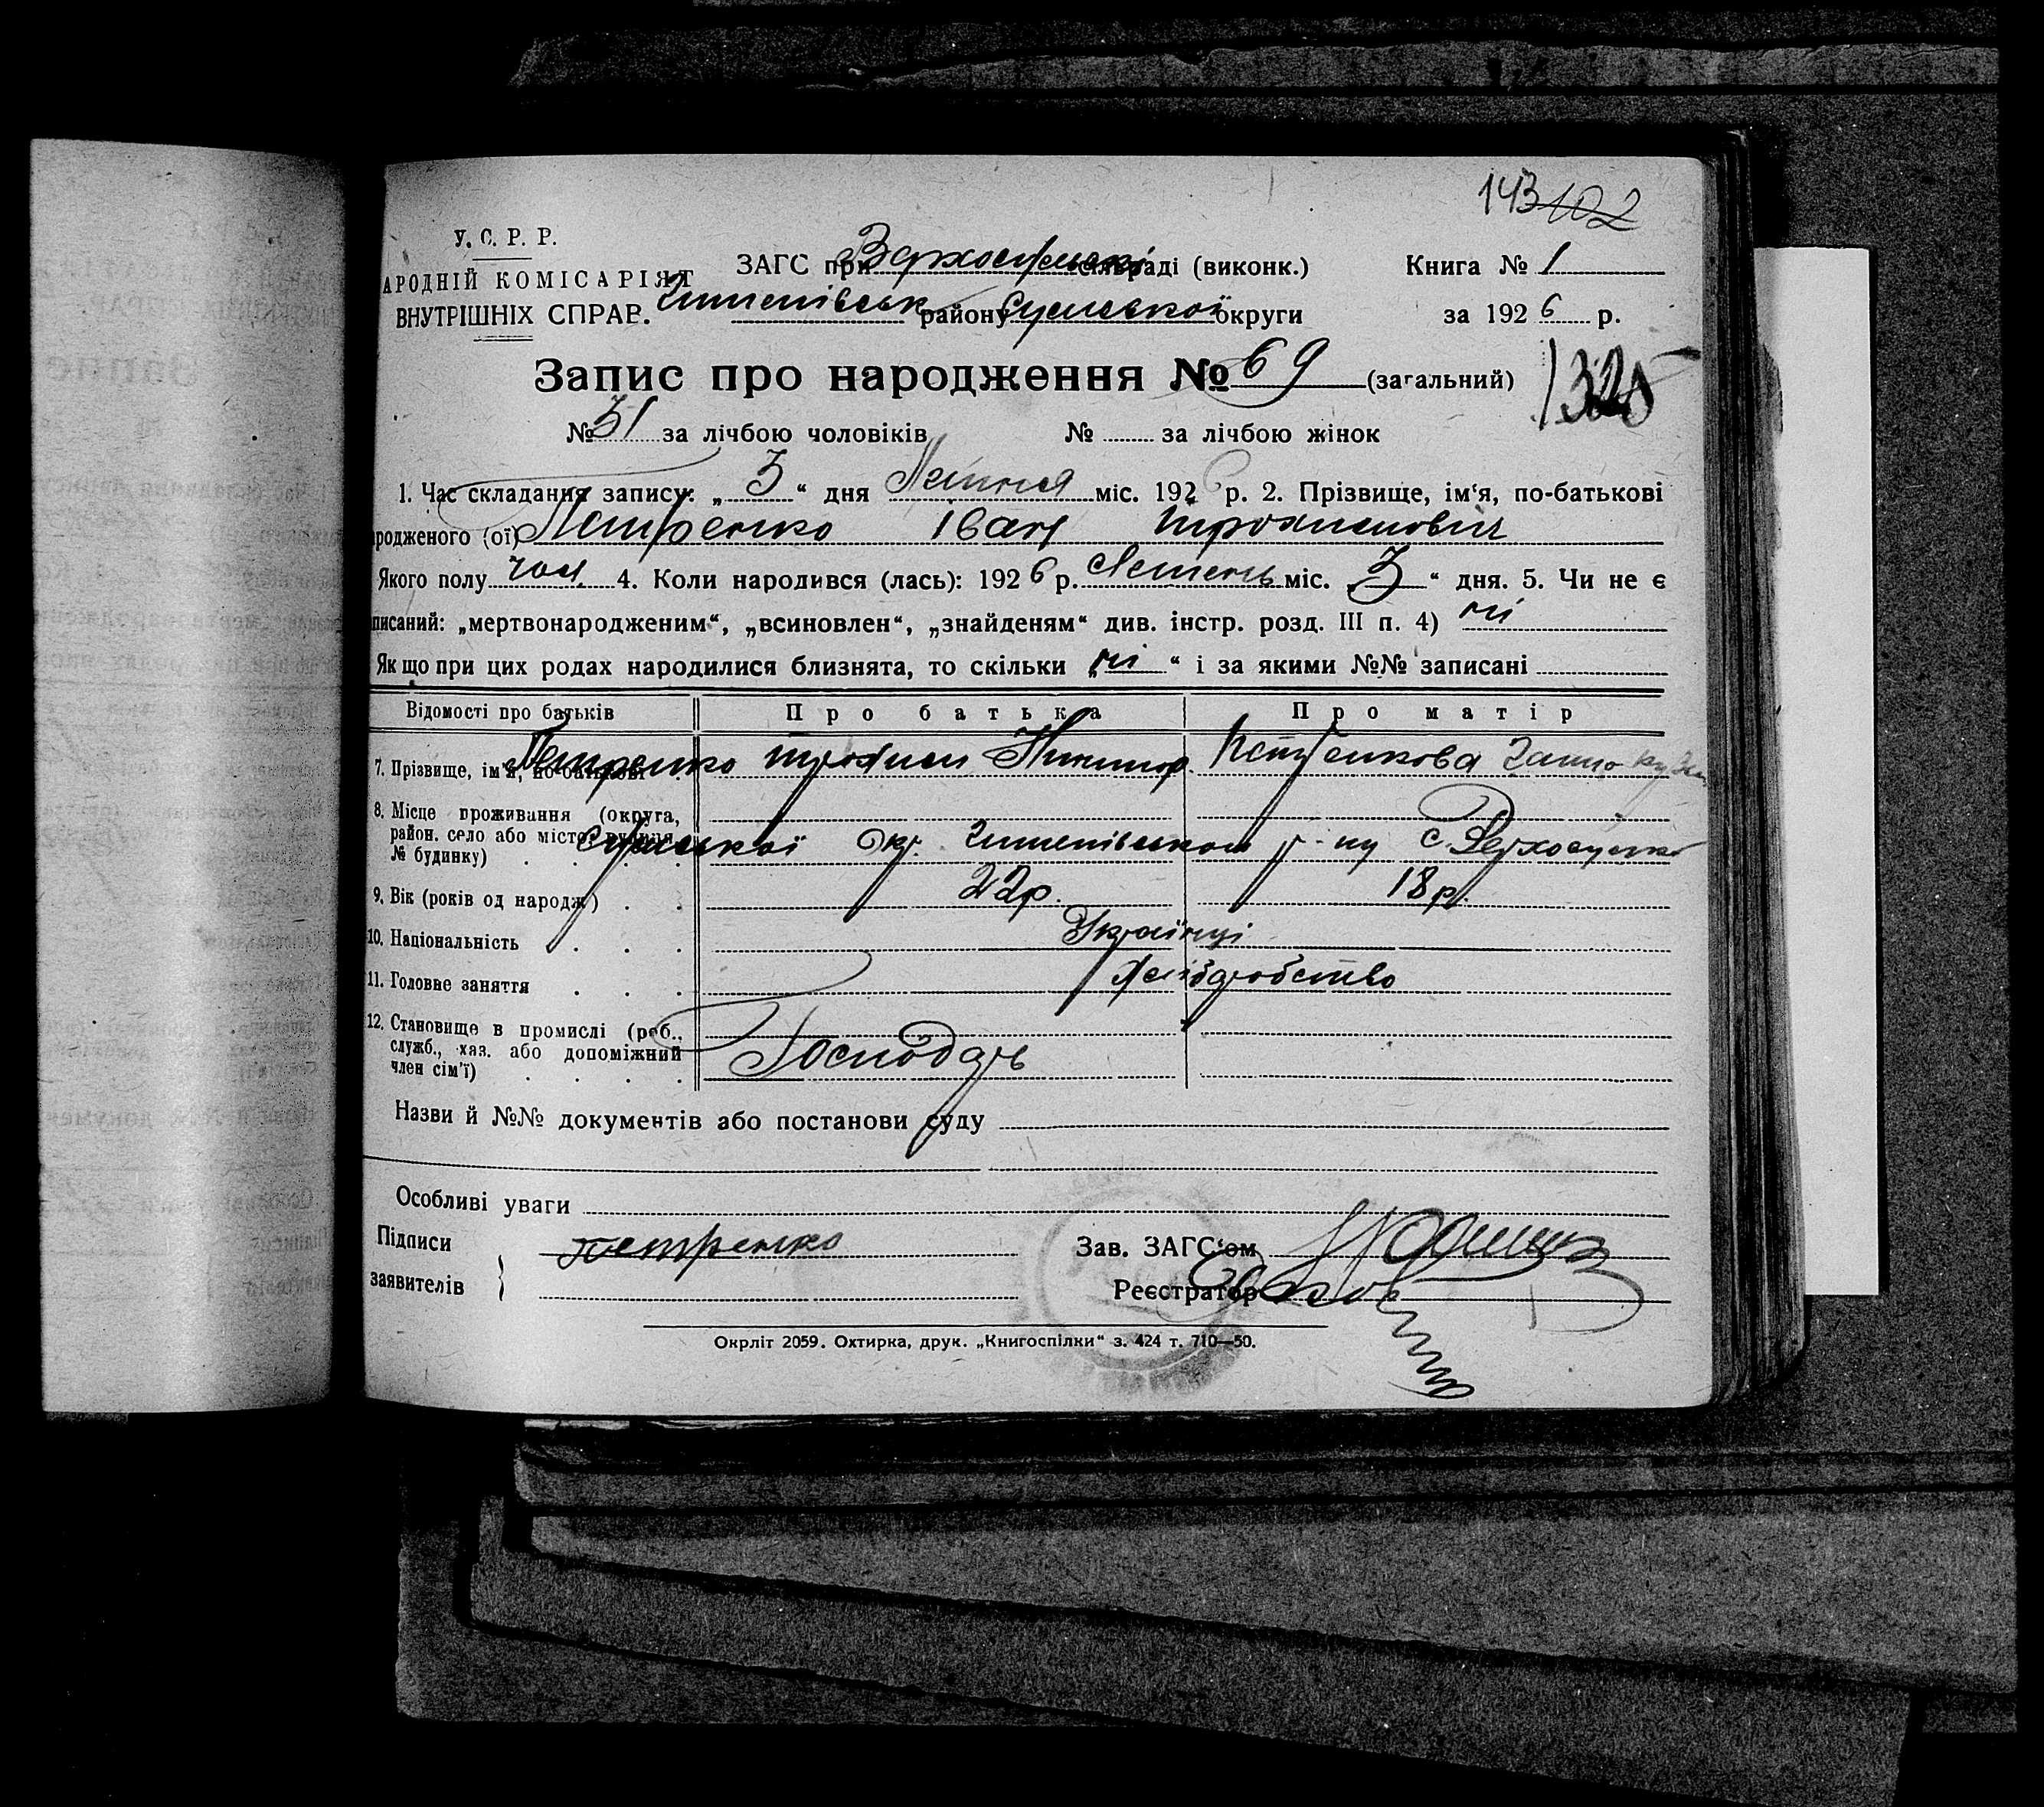 143 102
У. С. Р. Р.
АРОДНІЙ КОМІСАРІЯТ
ВНУТРІШНІХ СПРАВ.
ЗАГС при Верхосульські сільраді (виконк.)
Книга № 1
району Сумської округи
за 1926 р.
Запис про народження № 69 (загальний)
1325
№ 31 за лічбою чоловіків № за лічбою жінок
1. Час складання запису: „ 3 “ дня Липня міс. 1926 р. 2. Прізвище, ім‘я, по-батькові
родженого (ої) Петренко Іван Трохимович
Якого полу чол. 4. Коли народився (лась): 1926 р. міс. 3 “ дня. 5. Чи не є
писаний: „мертвонародженим“, „всиновлен“, „знайденям“ див. інстр. розд. III п. 4) ні
Якщо при цих родах народилися близнята, то скільки „ ні “ і за якими №№ записані
Відомості про батьків Про батька Про матір
7. Прізвище, ім‘я, по-батькові Петренко Трохим Никиф. Петренкова Ганна
8. Місце проживання (округа,
район. село або місто, вулиця,
№ будинку) Сумської Окр. р-ну с. Верхосулка
9. Вік (років од народж) 22р. 18р.
10. Національність Українці
11. Головне заняття Хліборобство
12. Становище в промислі (роб.,
служб., хаз. або допоміжний
член сім‘ї) Господарь
Назви й №№ документів або постанови суду
Особливі уваги
Підписи
заявителів
Петренко
Зав. ЗАГС‘ом
Реєстратор
Окрліт 2059. Охтирка, друк. „Книгоспілки“ з. 424 т. 710—50.